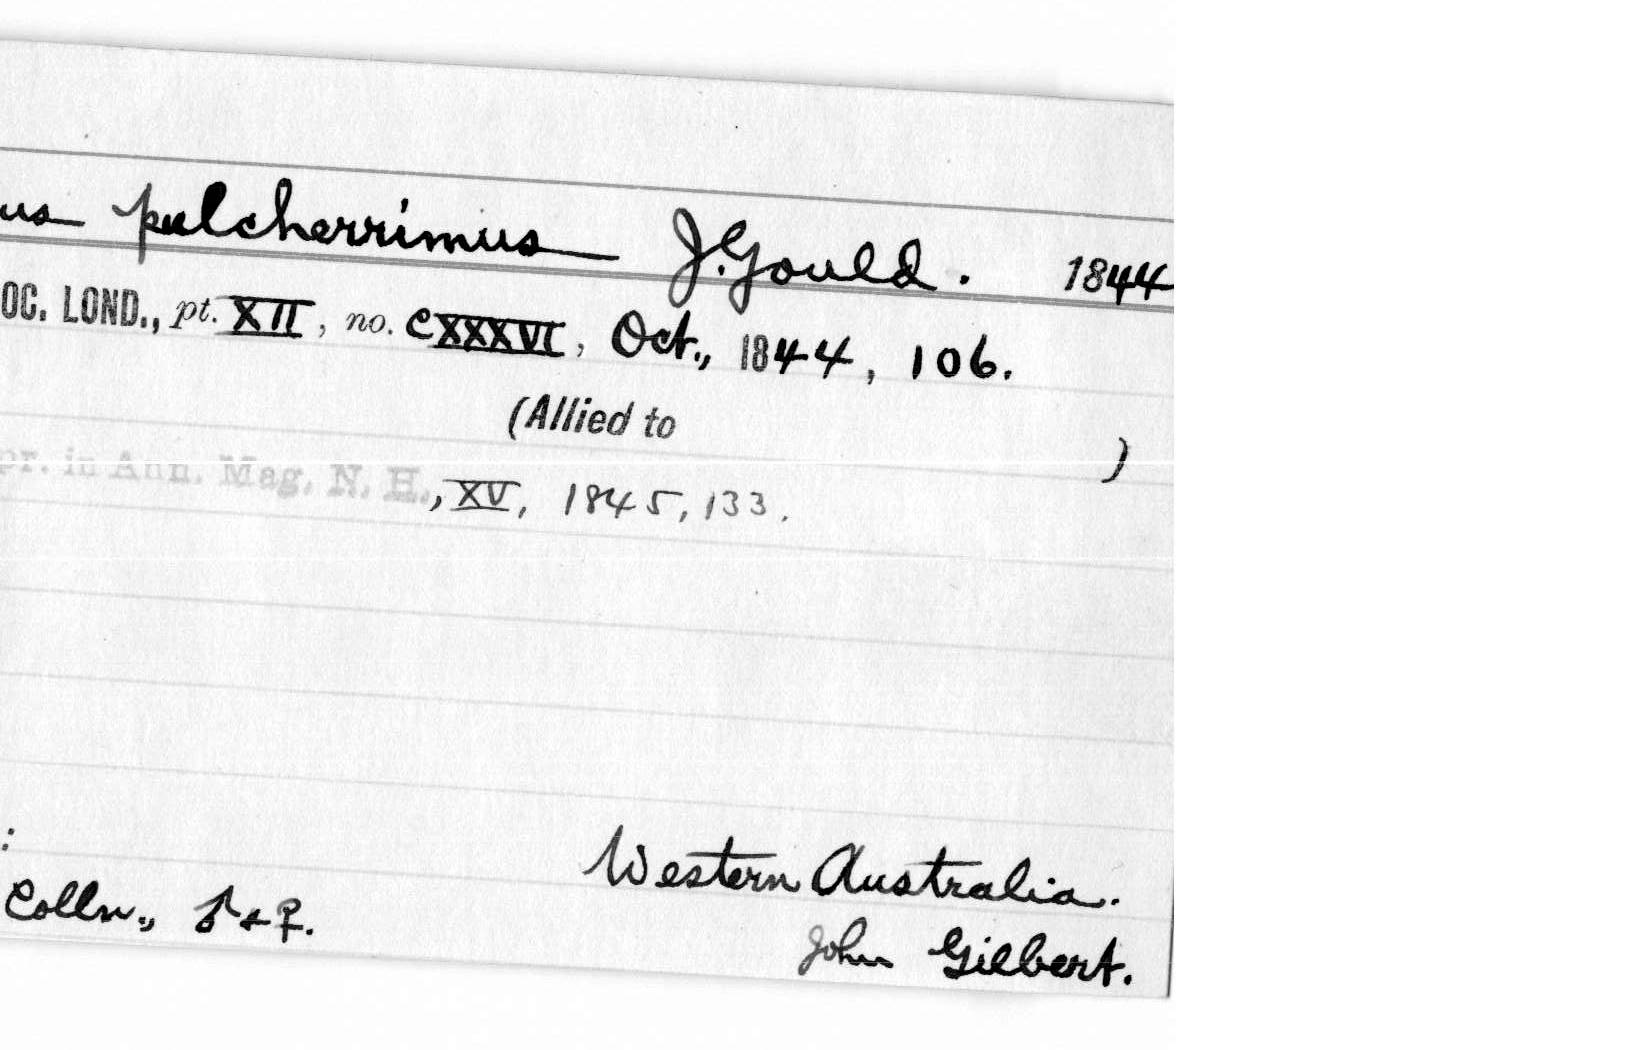 us pulcherrimus J. Gould. 1844
OC. LOND., pt. XII, no. CXXXVI, Oct., 1844, 106.
(Allied to )
pr. in Ann. Mag. N. H., XV, 1845, 133.
:
Western Australia.
Colln., ♂ & ♀.
John Gilbert.